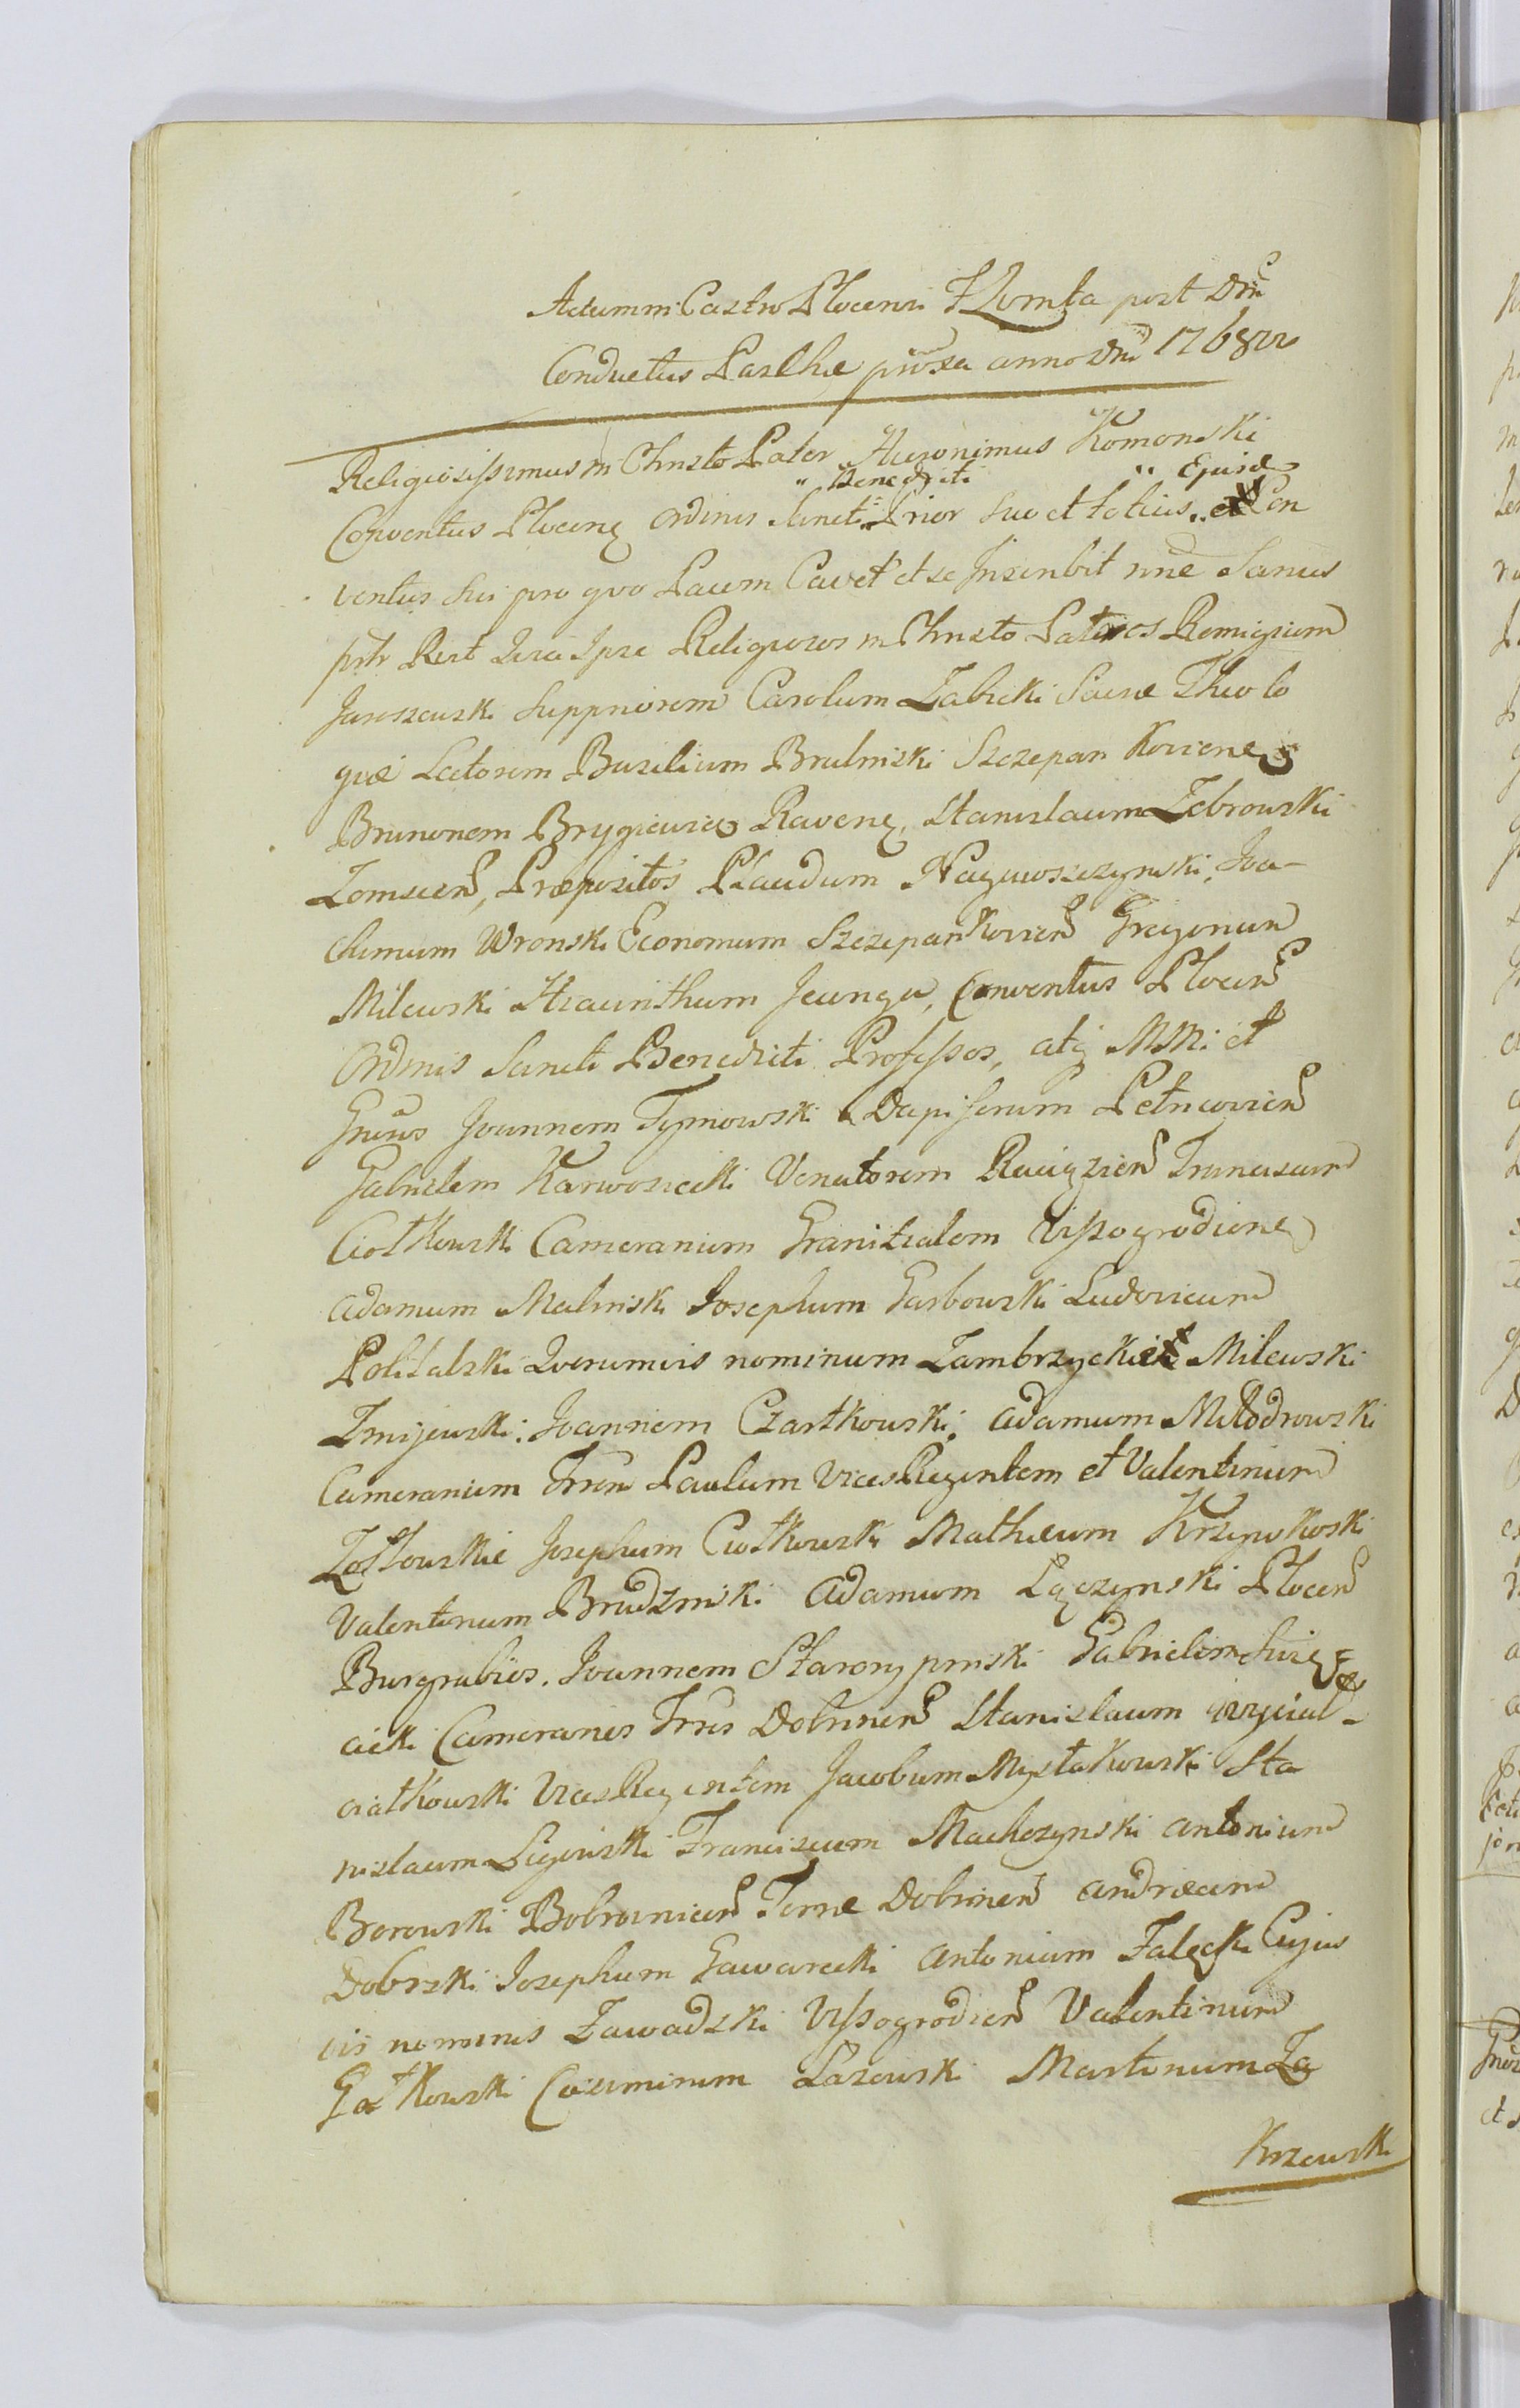 Actum in Castro Plocensi F Quinta post Dnĉ
Conductus Paschæ proxa anno Dni 1768vo
Religiosissimus in Christo Pater Hieronimus Komonski
Benedicti Ejusd
Conventus Plocenę Ordinis Sancti Prior suo et totius et Con
ventus sui pro quo Pacem Cavet et se Inscribit nne Sanus
prtr Rert Quia Ipse Religiosos in Christo Patres Remigium
Jaroszewski Suppriorem Carolum Zabicki Sacræ Theolo
giæ Lectorem Basilium Brulinski Szczepankovienę
Brunonem Brygiewicz Ravenę, Stanislaum Zebrowski
Lomzien, Præpositos Placidum Nagwoszczynski, Joa-
chimum Wronski Economum Szczepankovien Gregorium
Milewski Hiacinthum Jeunga, Conventus Plocen
Ordinis Sancti Benedicti Professos, atq MM: et
Gnosos Joannem Tymowski Dapiferum Petricovien
Gabrielem Karwosiecki Venatorem Raciązien Franciscum
Ciotkowski Camerarium Granitialem Vissogrodiens
Adamum Malinski Josephum Garbowski Ludovicum
Politalski Quorumvis nominum Zambrzycki et Milewski
Zmijewski: Joannem Czartkowski, Adamum Młodrowski
Camerarium Trren Paulum Vices Regentem et Valentinum
Zołtowskie Josephum Ciotkowski Mathæum Krzynkoski
Valentinum Brudzinski Adamum Lączynski Plocen
Burgrabios. Joannem Starorypinski Gabrielem Swięę
cicki Camerarios Trres Dobrinen Stanislaum
ciatkowski Vices Regentem Jacobum Mystkowski Sta
nislaum Ligowski Franciscum Machczynski Antonium
Borowski Bobrownicen Terræ Dobrinen Andræam
Dobrski Josephum Gawarecki Antonium Falęcki Cujus
vis nominis Zawadzki Vissogrodien Valentinum
Gołkowski Casimirum Lasowski Martinum Za
Krzewski